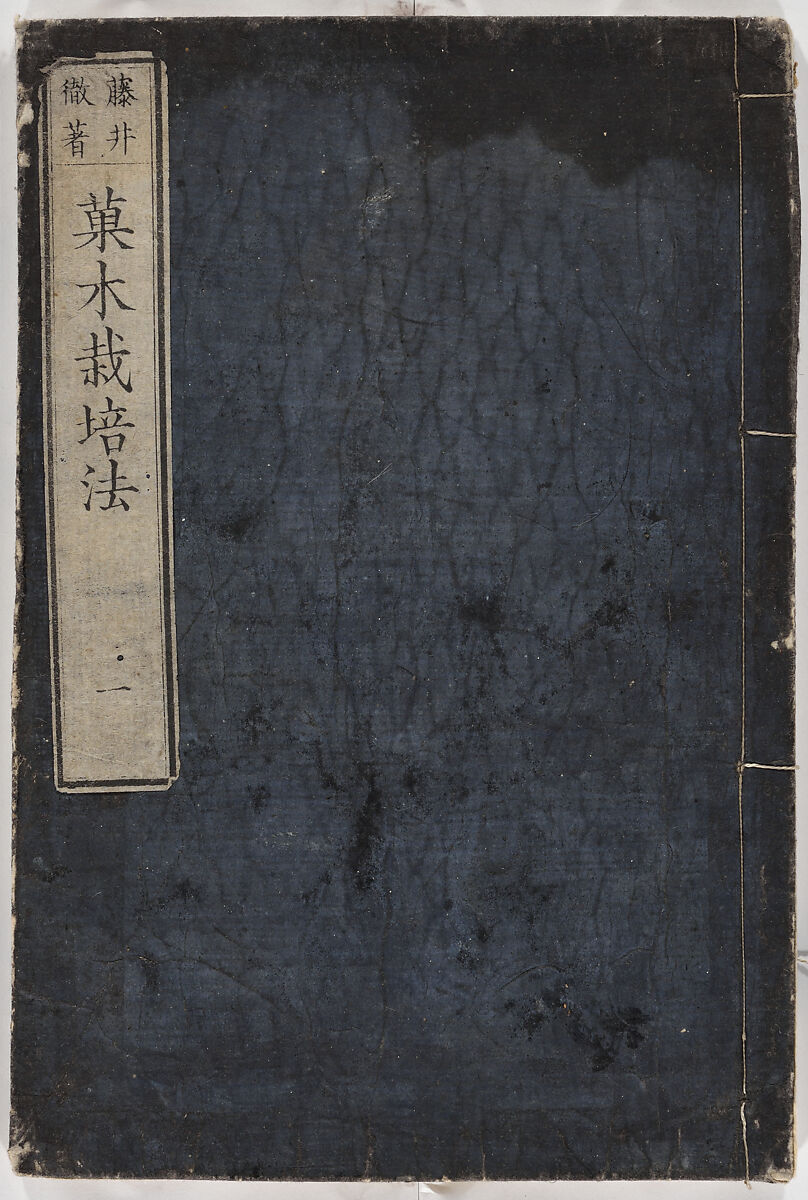 藤井
徹著
菓木栽培法
一